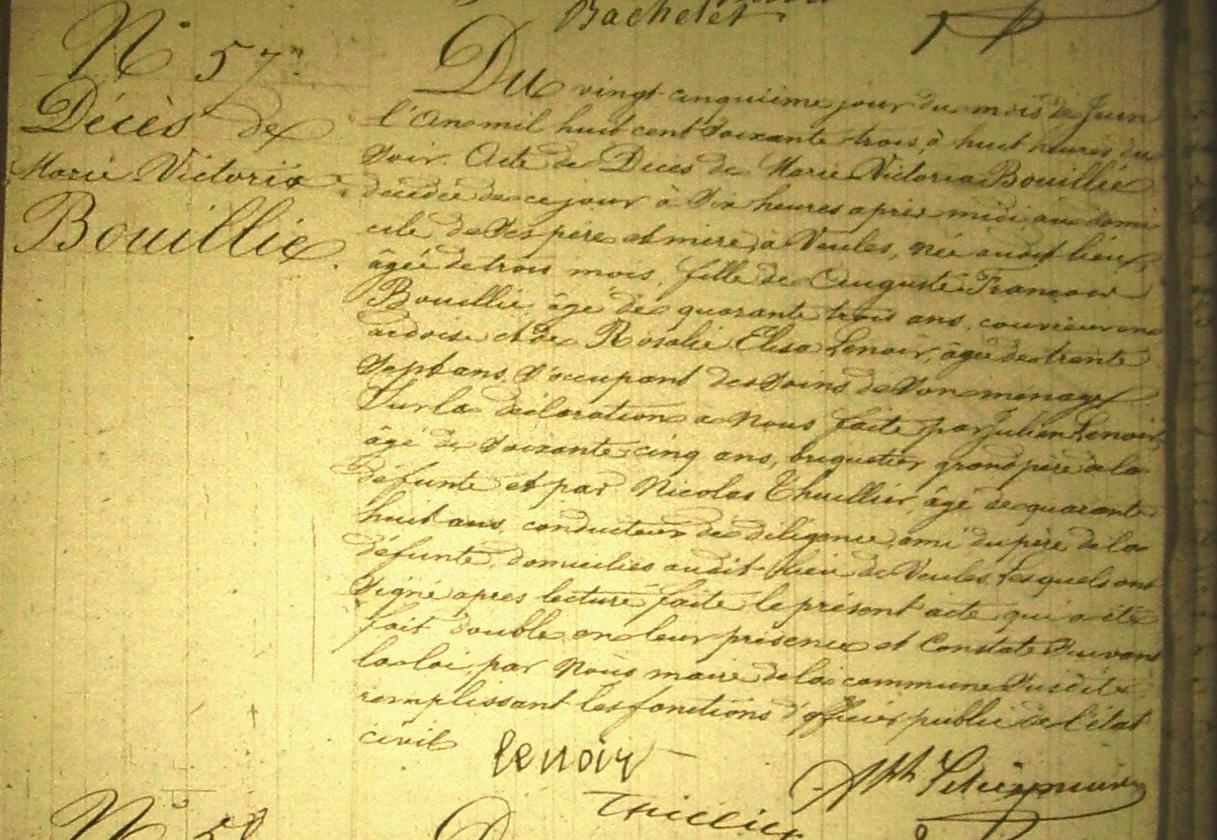 Bachelet
N° 57
Décès de
Marie Victoria
Bouillie
Du vingt cinquième jour du mois de Juin
l'An mil huit cent Soixante trois, à huit heures du
Soir. Acte de Décès de Marie Victoria Bouillie
décédée de ce jour à Six heures après midi au domi
cile de Ses père et mère, à Veules, née audit lieu,
âgée de trois mois, fille de Auguste Francois
Bouillie, âgé de quarante trois ans, couvreur en
ardoise et de Rosalie Elisa Lenoir, âgée de trente
Sept ans, S'occupant des Soins de Son ménage
Sur la déclaration a Nous faite par Julien Lenoir,
âgé de Soixante cinq ans, briquetier grand père de la
défunte et par Nicolas Thuillier, âgé de quarante
huit ans conducteur de diligence, ami du père de la
défunte, domicilies audit lieu de Veules, lesquels ont
Signé après lecture faite le présent acte qui a été
fait double en leur présence et Constaté Suivant
la loi par Nous maire de la commune Susdite
remplissant les fonctions d'officier public de l'état
civil
lenoir
N° 58
D